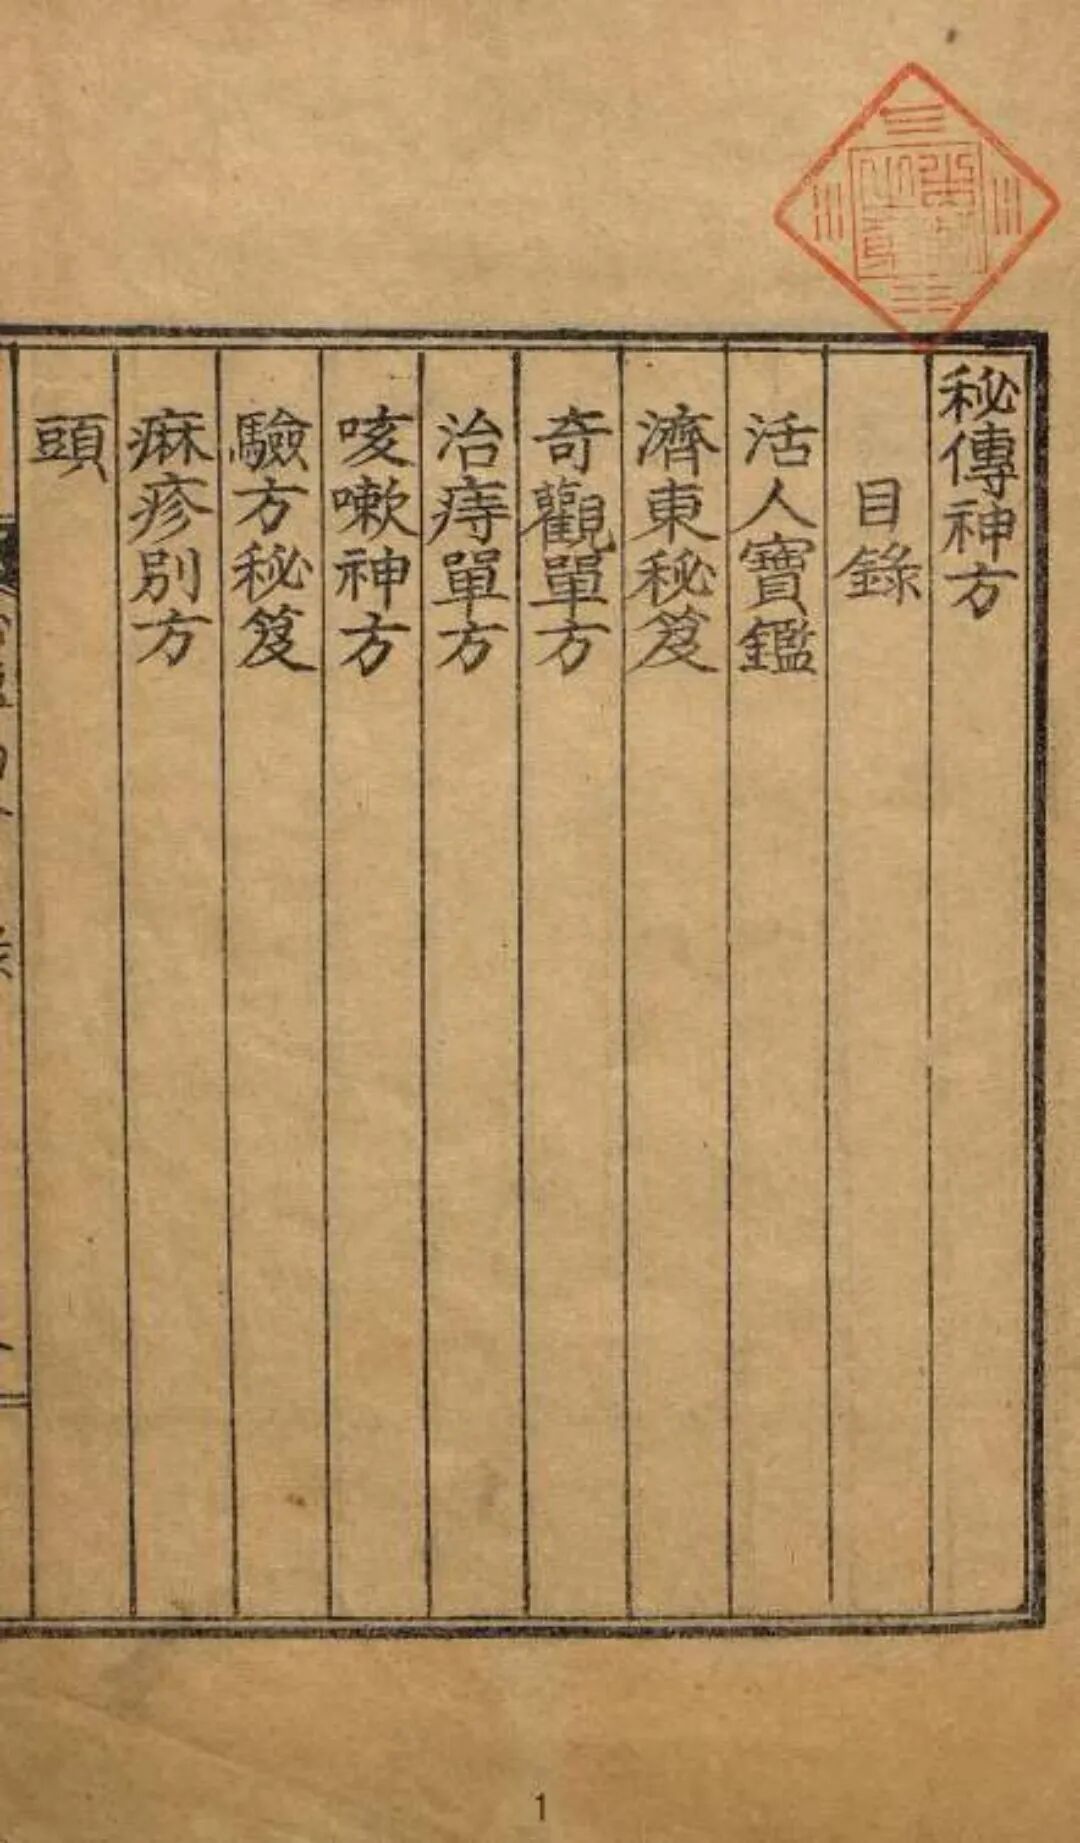 秘傳神方
目錄
活人寶鑑
濟東秘笈
奇觀單方
治痔單方
咳嗽神方
驗方秘笈
痲疹別方
頭
1